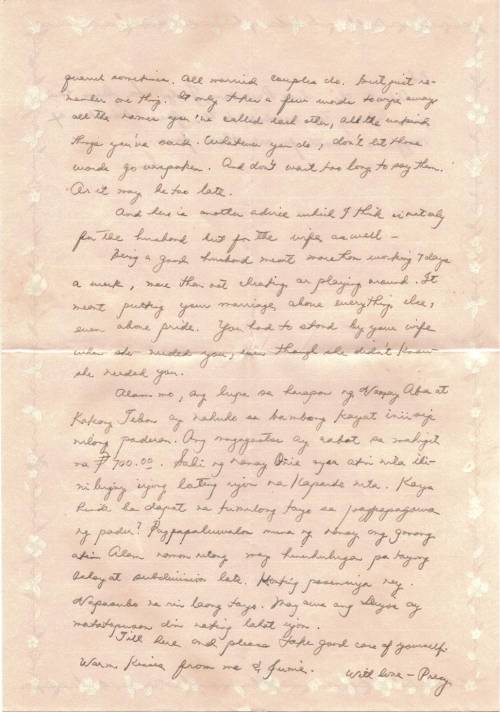 quarrel sometimes. All married couples do. But just re-
member one thing. It only takes a few words to wipe away
all the names you've called each other, all the unkind
things you've said. Whatever you do, don't let those
words go unspoken. And don't wait too long to say them.
Or it may be too late.
And here is another advice which I think is not only
for the husband but for the wife, as well -
Being a good husband meant more than working 7 days
a week, more than not cheating or playing around. It
meant putting your marriage above everything else,
even above pride. You had to stand by your wife
when she needed you, even though she didn't know
she needed you.
Alam mo, ang lupa sa harapan ng Nanay Aba at
Kakang ay nahuho sa kayat
nilang paderan. Ang magagastos ay aabot sa mahigit
na ₱700.00. Sabi ng nanay ay atin nila
iyong lating iyon na nila. Kaya
hindi ba dapat na tumulong tayo sa pagpapagawa
ng pader? muna ng nanay ang
atin Alam naman nilang may hinuhulugan pa tayong
bahay at subdivision lote. pasensiya ney.
Napasubo na rin lang tayo. May awa ang Diyos ay
matatapusan din nating lahat iyon.
Till here and please take good care of yourself.
Warm kisses from me & Junie. With love - Precy